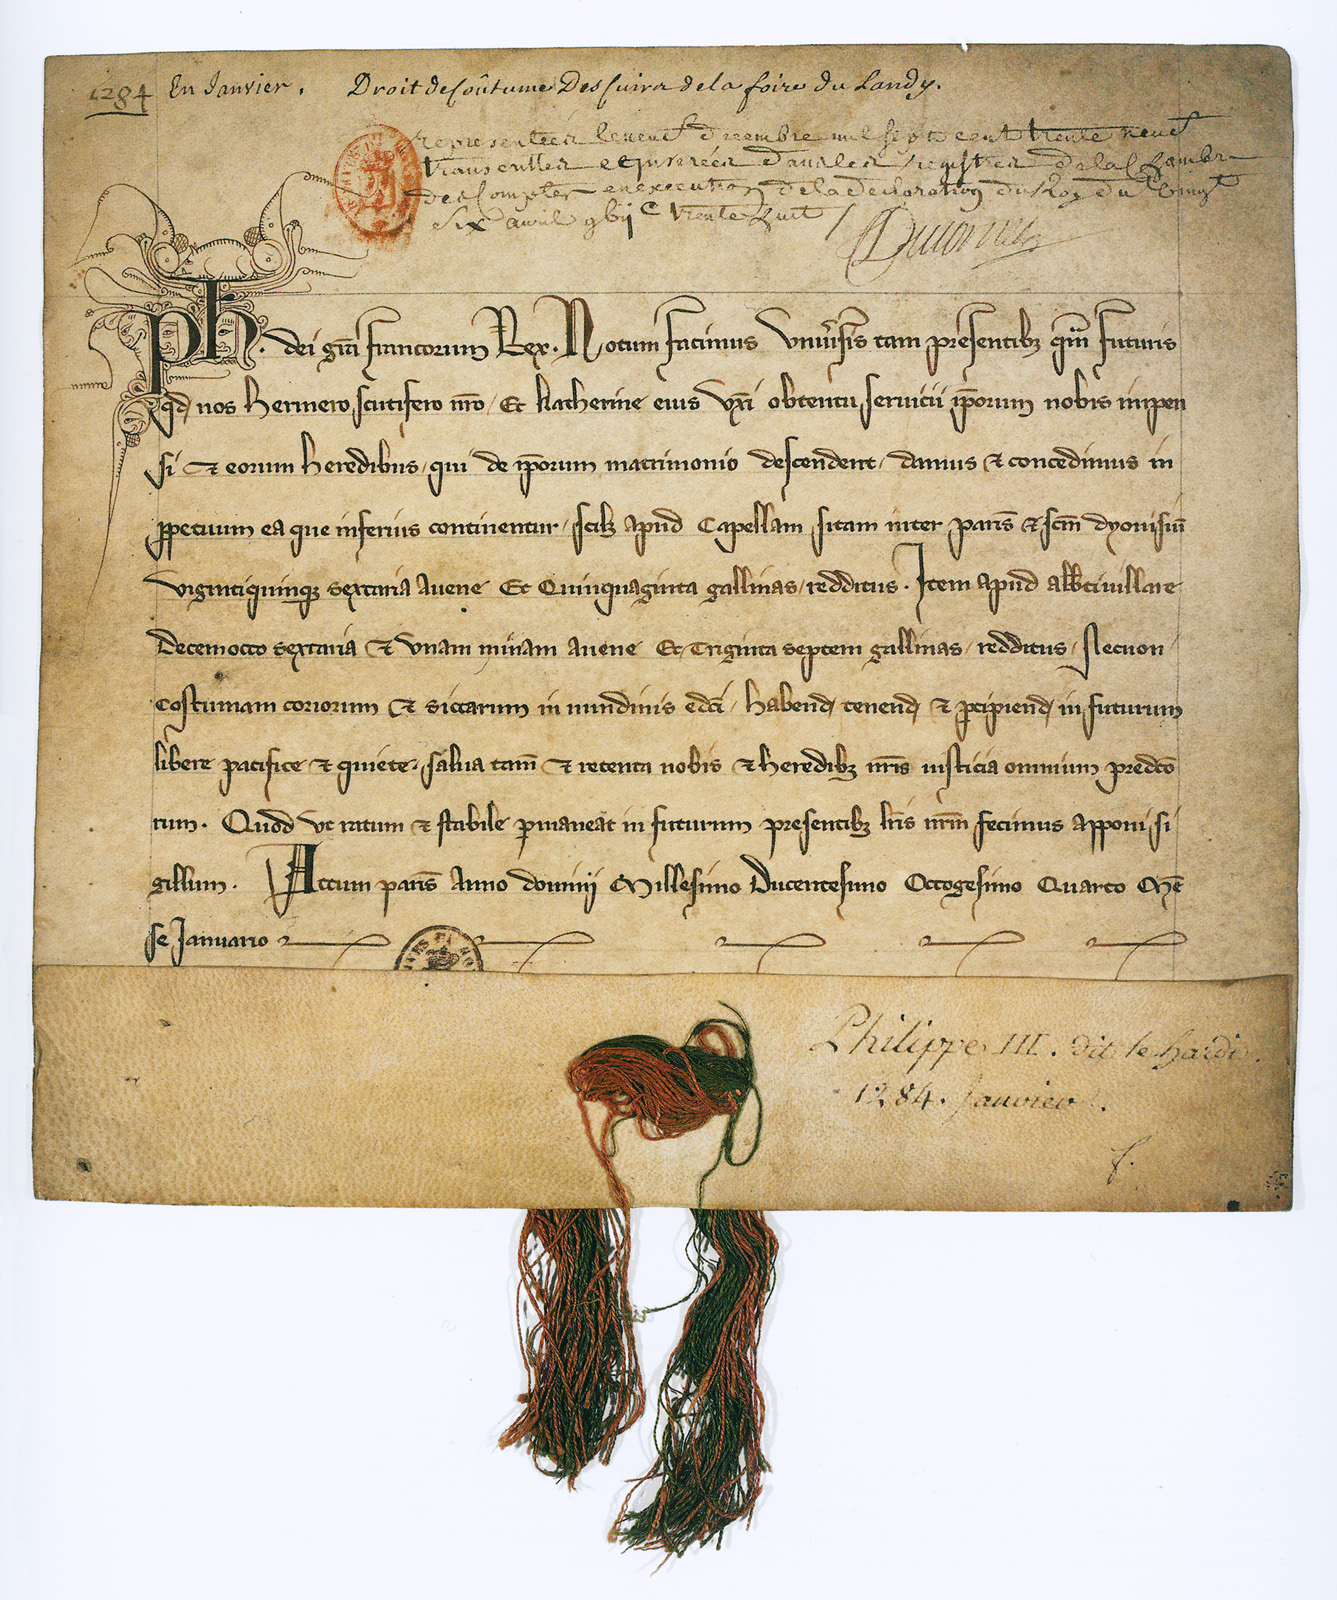 1284 En Janvier. Droit de Coûtume Des Cuirs de la foire du Landy.
representées le neuf decembre mil sept cent trente neuf
transcrittes et inserées dans les registres de la Chambre
des Comptes en execution de la declaration du Roy du vingt
six avril gbij C trente huit /
Ph. dei gra francorum Rex. Notum facimus Universis tam presentibz qm futuris
qd nos hermero scutifero nro / Et Katherine eius uxi obtentu servicii iporum nobis impen
si Et eorum heredibus / qui de iporum matrimonio descendent / damus Et concedimus in
ppetuum ea que inferius continentur / scilz apud Capellam sitam inter paris Et scm dyonisiu
viginti quinqz sextaria avene Et Quinquaginta gallinas / redditus. Item apud albtivillare
Decemocto sextaria Et unam minam avene Et Triginta septem gallinas / redditus / Necnon
Costumam coriorum Et siccarum in nundinis edci / habend tenend Et pcipiend in futurum
libere pacifice Et quiete / salva tam Et retenta nobis Et heredibz nris iusticia omnium predco
rum. Quod ut ratum Et stabile pmaneat in futurum presentibz lris nrm fecimus apponi si
gillum. Actum paris Anno domini Millesimo Ducentesimo Octogesimo Quarto Mē
se Januario
Philippe III. dit le hardi.
1284. Janvier.